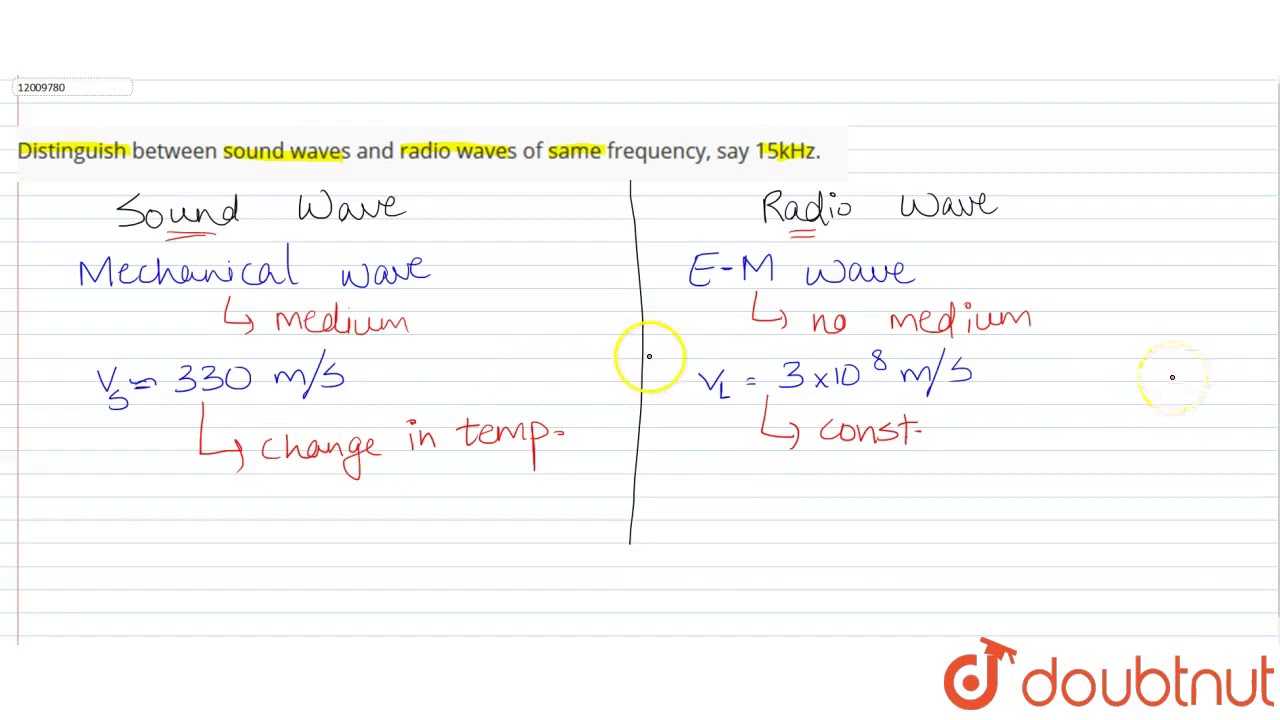 12009780
Distinguish between sound waves and radio waves of same frequency, say 15kHz.
Sound Wave
Mechanical wave
↳ medium
Vs = 330 m/s
↳ change in temp.
Radio wave
E-M wave
↳ no medium
VL = 3×10⁸ m/s
↳ const.
doubtnut